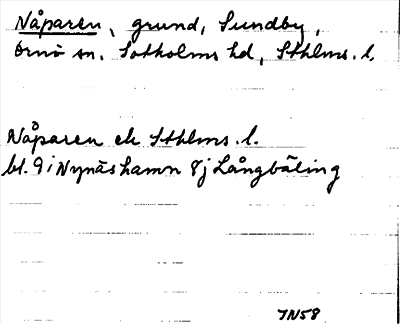 Nåparen, grund, Sundby,
Ornö sn. Sotholms hd, Sthlms. l.
Nåparen ek Sthlms. l.
bl. 9 i Nynäshamn 8j Långbäling
JN58